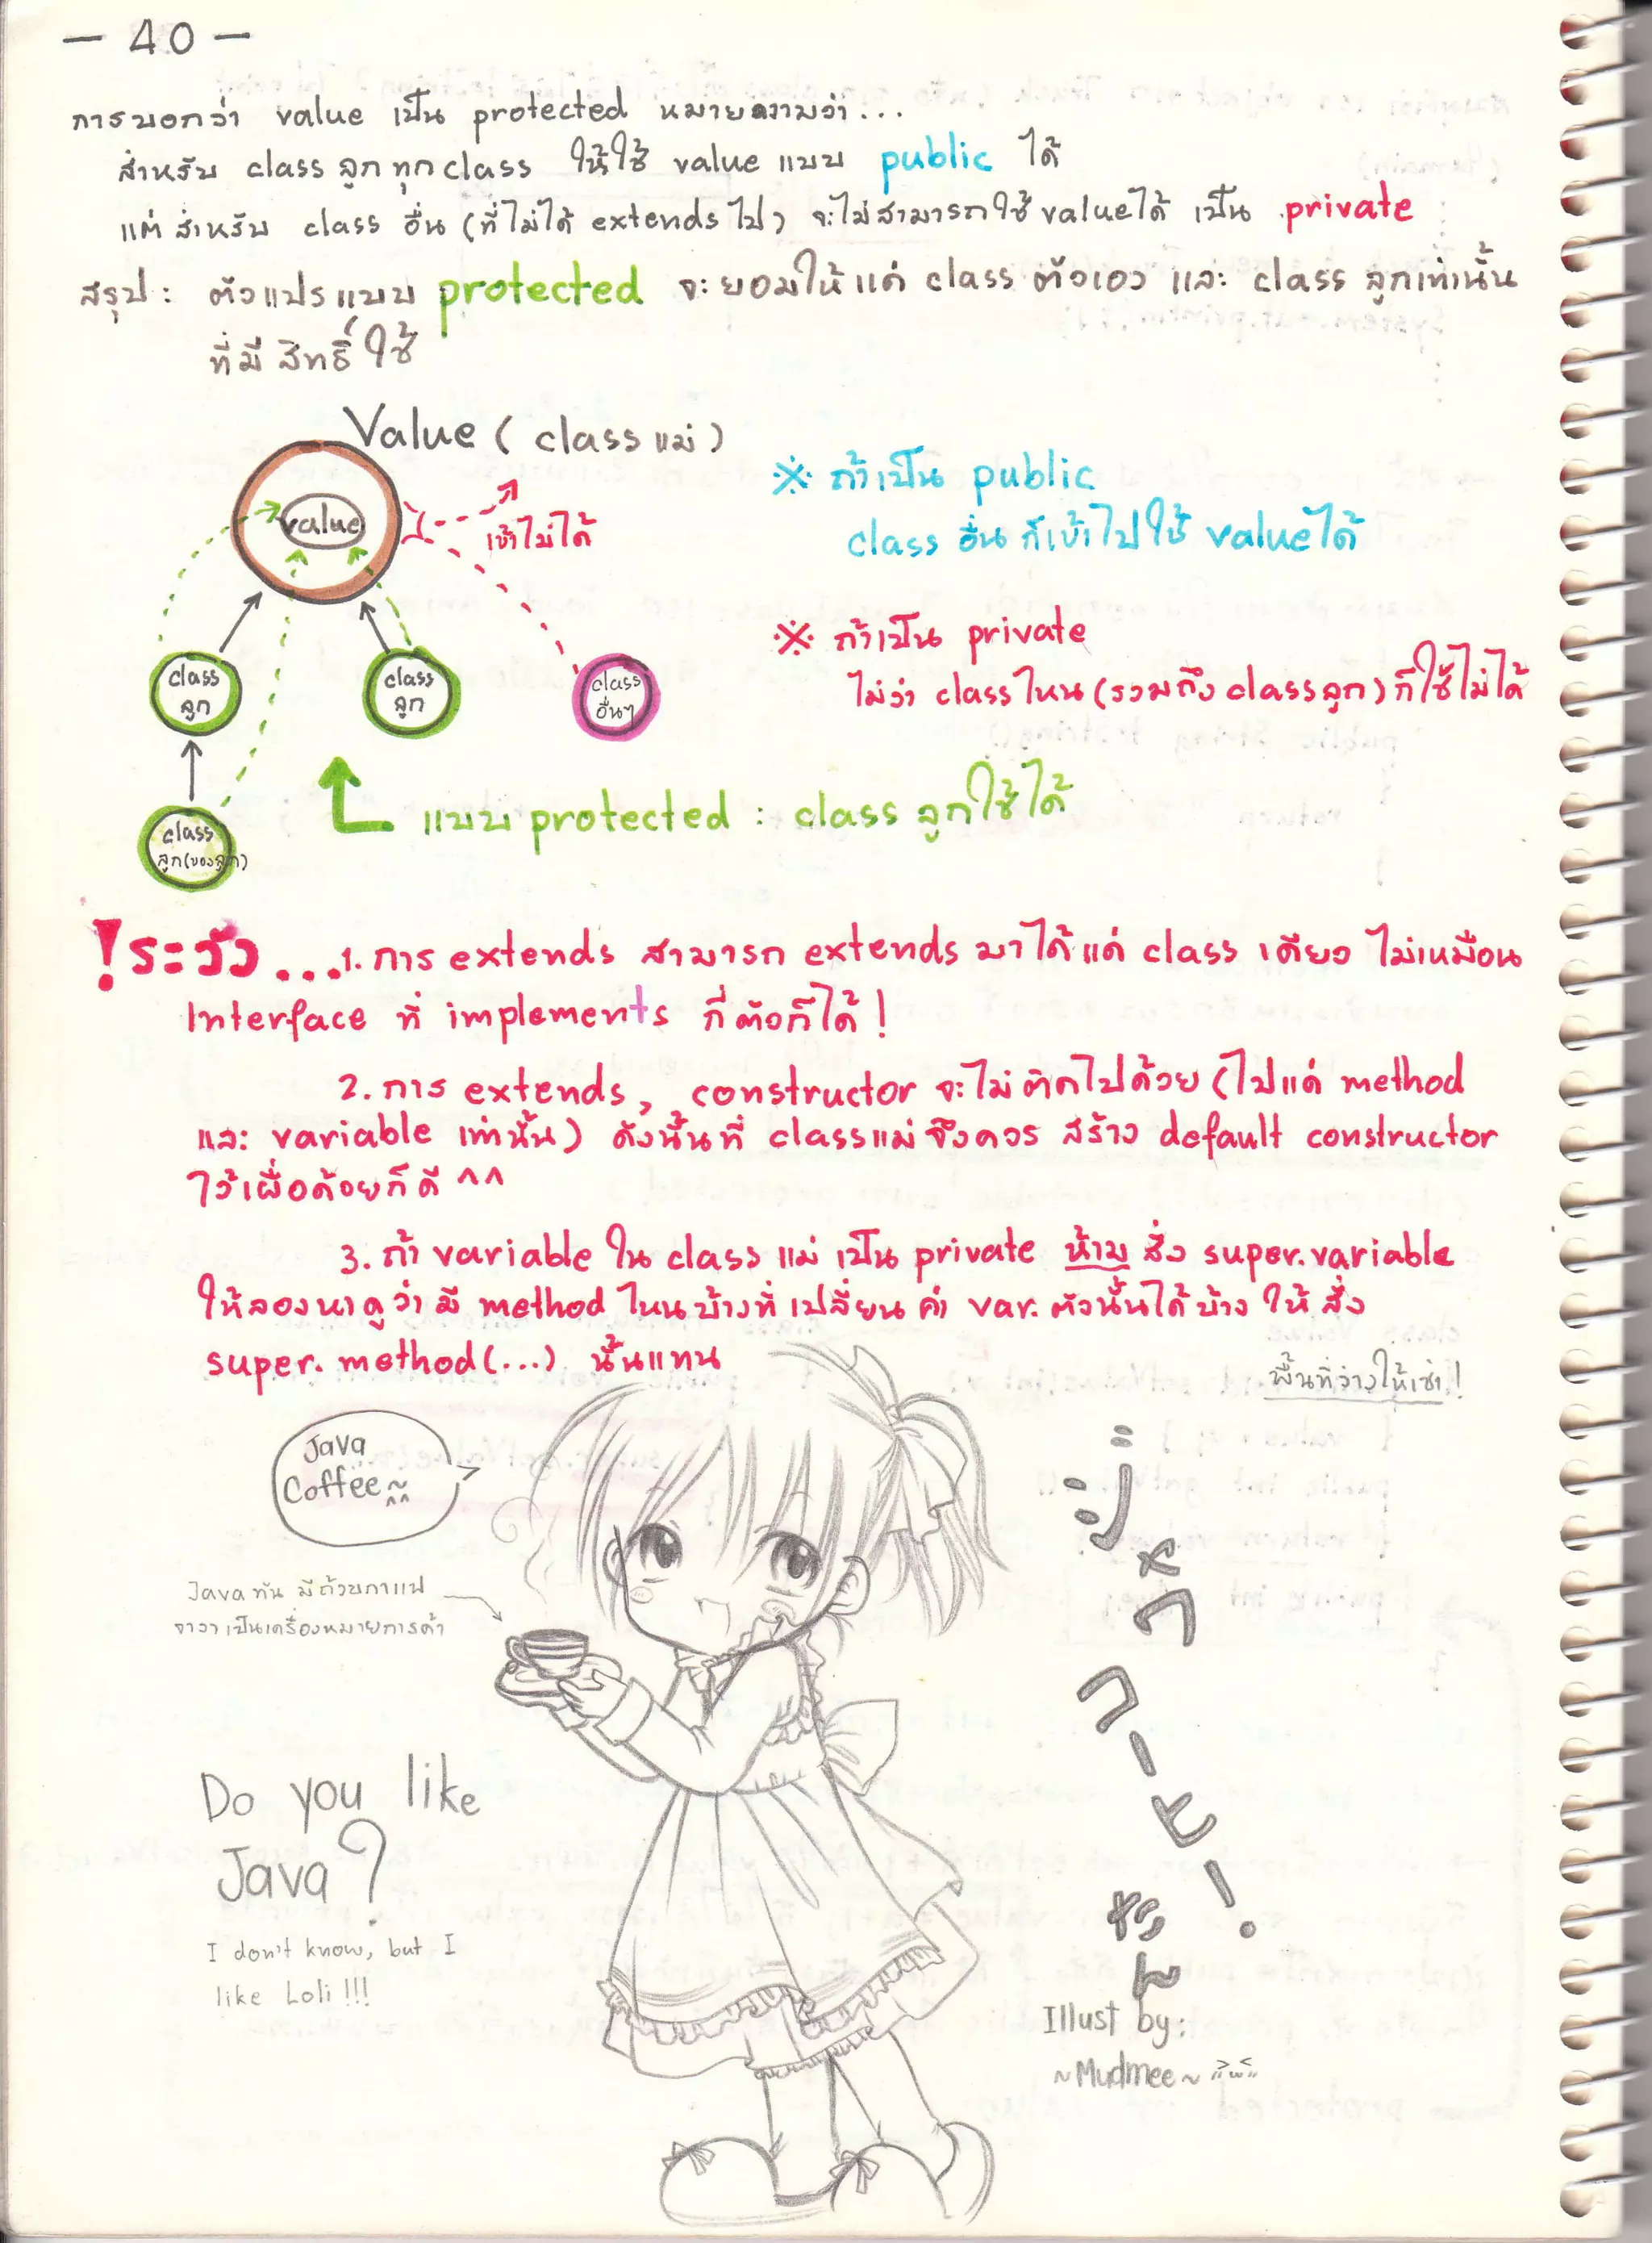 - 40 -
การบอกว่า value เป็น protected หมายความว่า...
สำหรับ class ลูก ทุก class ให้ใช้ value แบบ public ได้
แต่ สำหรับ class อื่น (ที่ไม่ได้ extends ไป) จะไม่สามารถใช้ value ได้ เป็น private
สรุป : ตัวแปรแบบ protected จะยอมให้แค่ class ตัวเอง และ class ลูกเท่านั้น
ที่มี สิทธิ์ ใช้
Value ( class แม่ )
value
เข้าไม่ได้
class
ลูก
class
ลูก
class
อื่นๆ
class
ลูก(ของลูก)
※ ถ้าเป็น public
class อื่น ก็เข้าไปใช้ value ได้
※ ถ้าเป็น private
ไม่ว่า class ไหน (รวมถึง class ลูก) ก็ใช้ไม่ได้
แบบ protected : class ลูกใช้ได้
!ระวัง...1. การ extends สามารถ extends มาได้แค่ class เดียว ไม่เหมือน
Interface ที่ implements กี่ตัวก็ได้ !
2. การ extends, constructor จะไม่ติดไปด้วย (ไปแค่ method
และ variable เท่านั้น) ดังนั้นที่ class แม่ จึงควร สร้าง default constructor
ไว้เผื่อด้วยก็ดี ^^
3. ถ้า variable ใน class แม่ เป็น private ห้าม สั่ง super.variable
ให้ลองหาดูว่า มี method ไหนบ้างที่เปลี่ยน ค่า var. ตัวนั้นได้บ้าง ให้ สั่ง
super. method(...) นั้นแทน
พื้นที่ว่างให้เช่า !
Java
Coffee~
^^
Java ทัน มีถ้วยกาแฟ
จาวา เป็นเครื่องหมายการค้า
Do you like
Java?
I don't know, but I
like Loli !!!
ジャワコーヒー!
やん
Illust by:
~Mudmee~ >w<